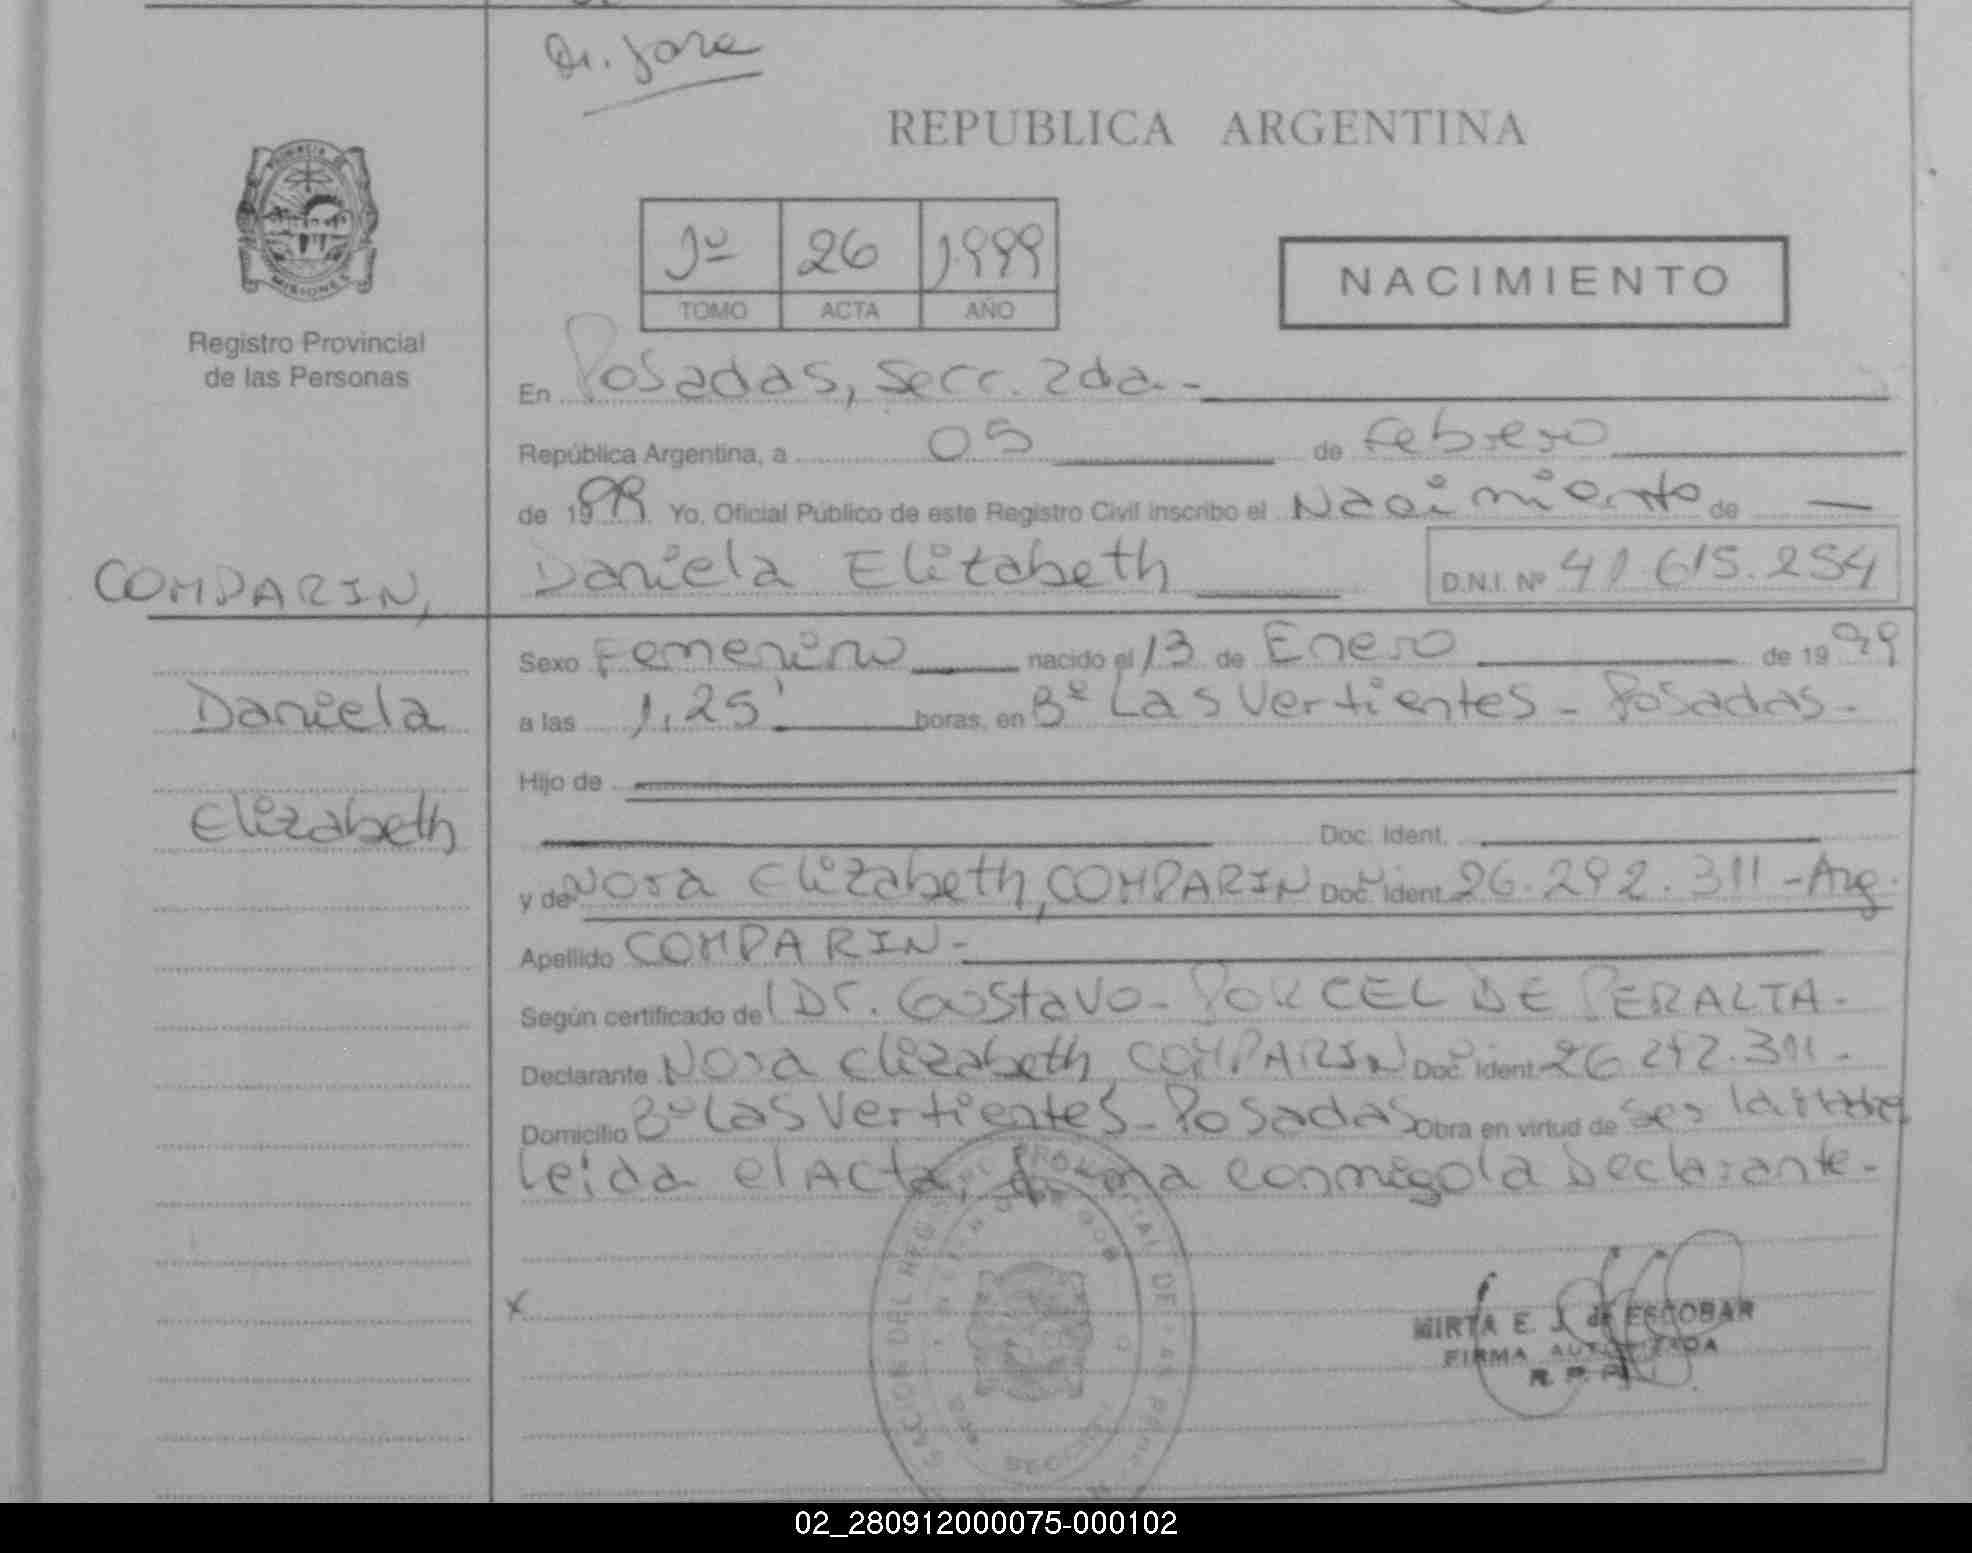 Dr. Jore
REPUBLICA ARGENTINA
PROVINCIA DE
MISIONES
Registro Provincial
de las Personas
1º 26 1999
TOMO ACTA AÑO
NACIMIENTO
En Posadas, Secc. 2da.-
República Argentina, a 05 de Febrero
de 1999 Yo, Oficial Público de este Registro Civil inscribo el Nacimiento de —
COMPARIN, Daniela Elizabeth D.N.I. Nº 41.615.254
Sexo Femenino nacido el 13 de Enero de 1999
Daniela
a las 1,25' horas, en Bº Las Vertientes - Posadas.-
Hijo de
Elizabeth
Doc. Ident.
y de Nora Elizabeth, COMPARIN Doc. Ident. 26.292.311 - Arg.
Apellido COMPARIN-
Según certificado del Dr. Gustavo - PORCEL DE PERALTA.-
Declarante Nora Elizabeth COMPARIN Doc. Ident. 26.292.311 -
Domicilio Bº Las Vertientes - Posadas Obra en virtud de ser la madre
leida el Acta, firma conmigo la Declarante.-
x
MIRTA E. J. de ESCOBAR
FIRMA AUTORIZADA
R. P. P.
02_280912000075-000102